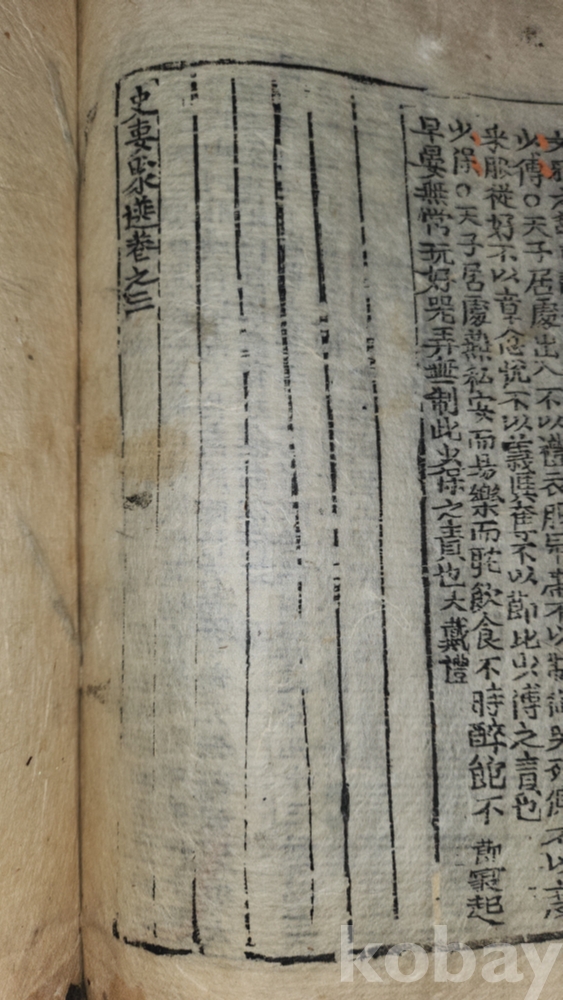 少傅○天子居處出入不以禮衣服冠帶不以制御器列側不以度
采服從好不以章忿悅不以義與奪不以節此少傅之責也
少保○天子居處燕私安而易樂而耽飲食不時醉飽不節寢起
早晏無常玩好器弄無制此少保之責也大戴禮
史要聚選卷之三
kobay